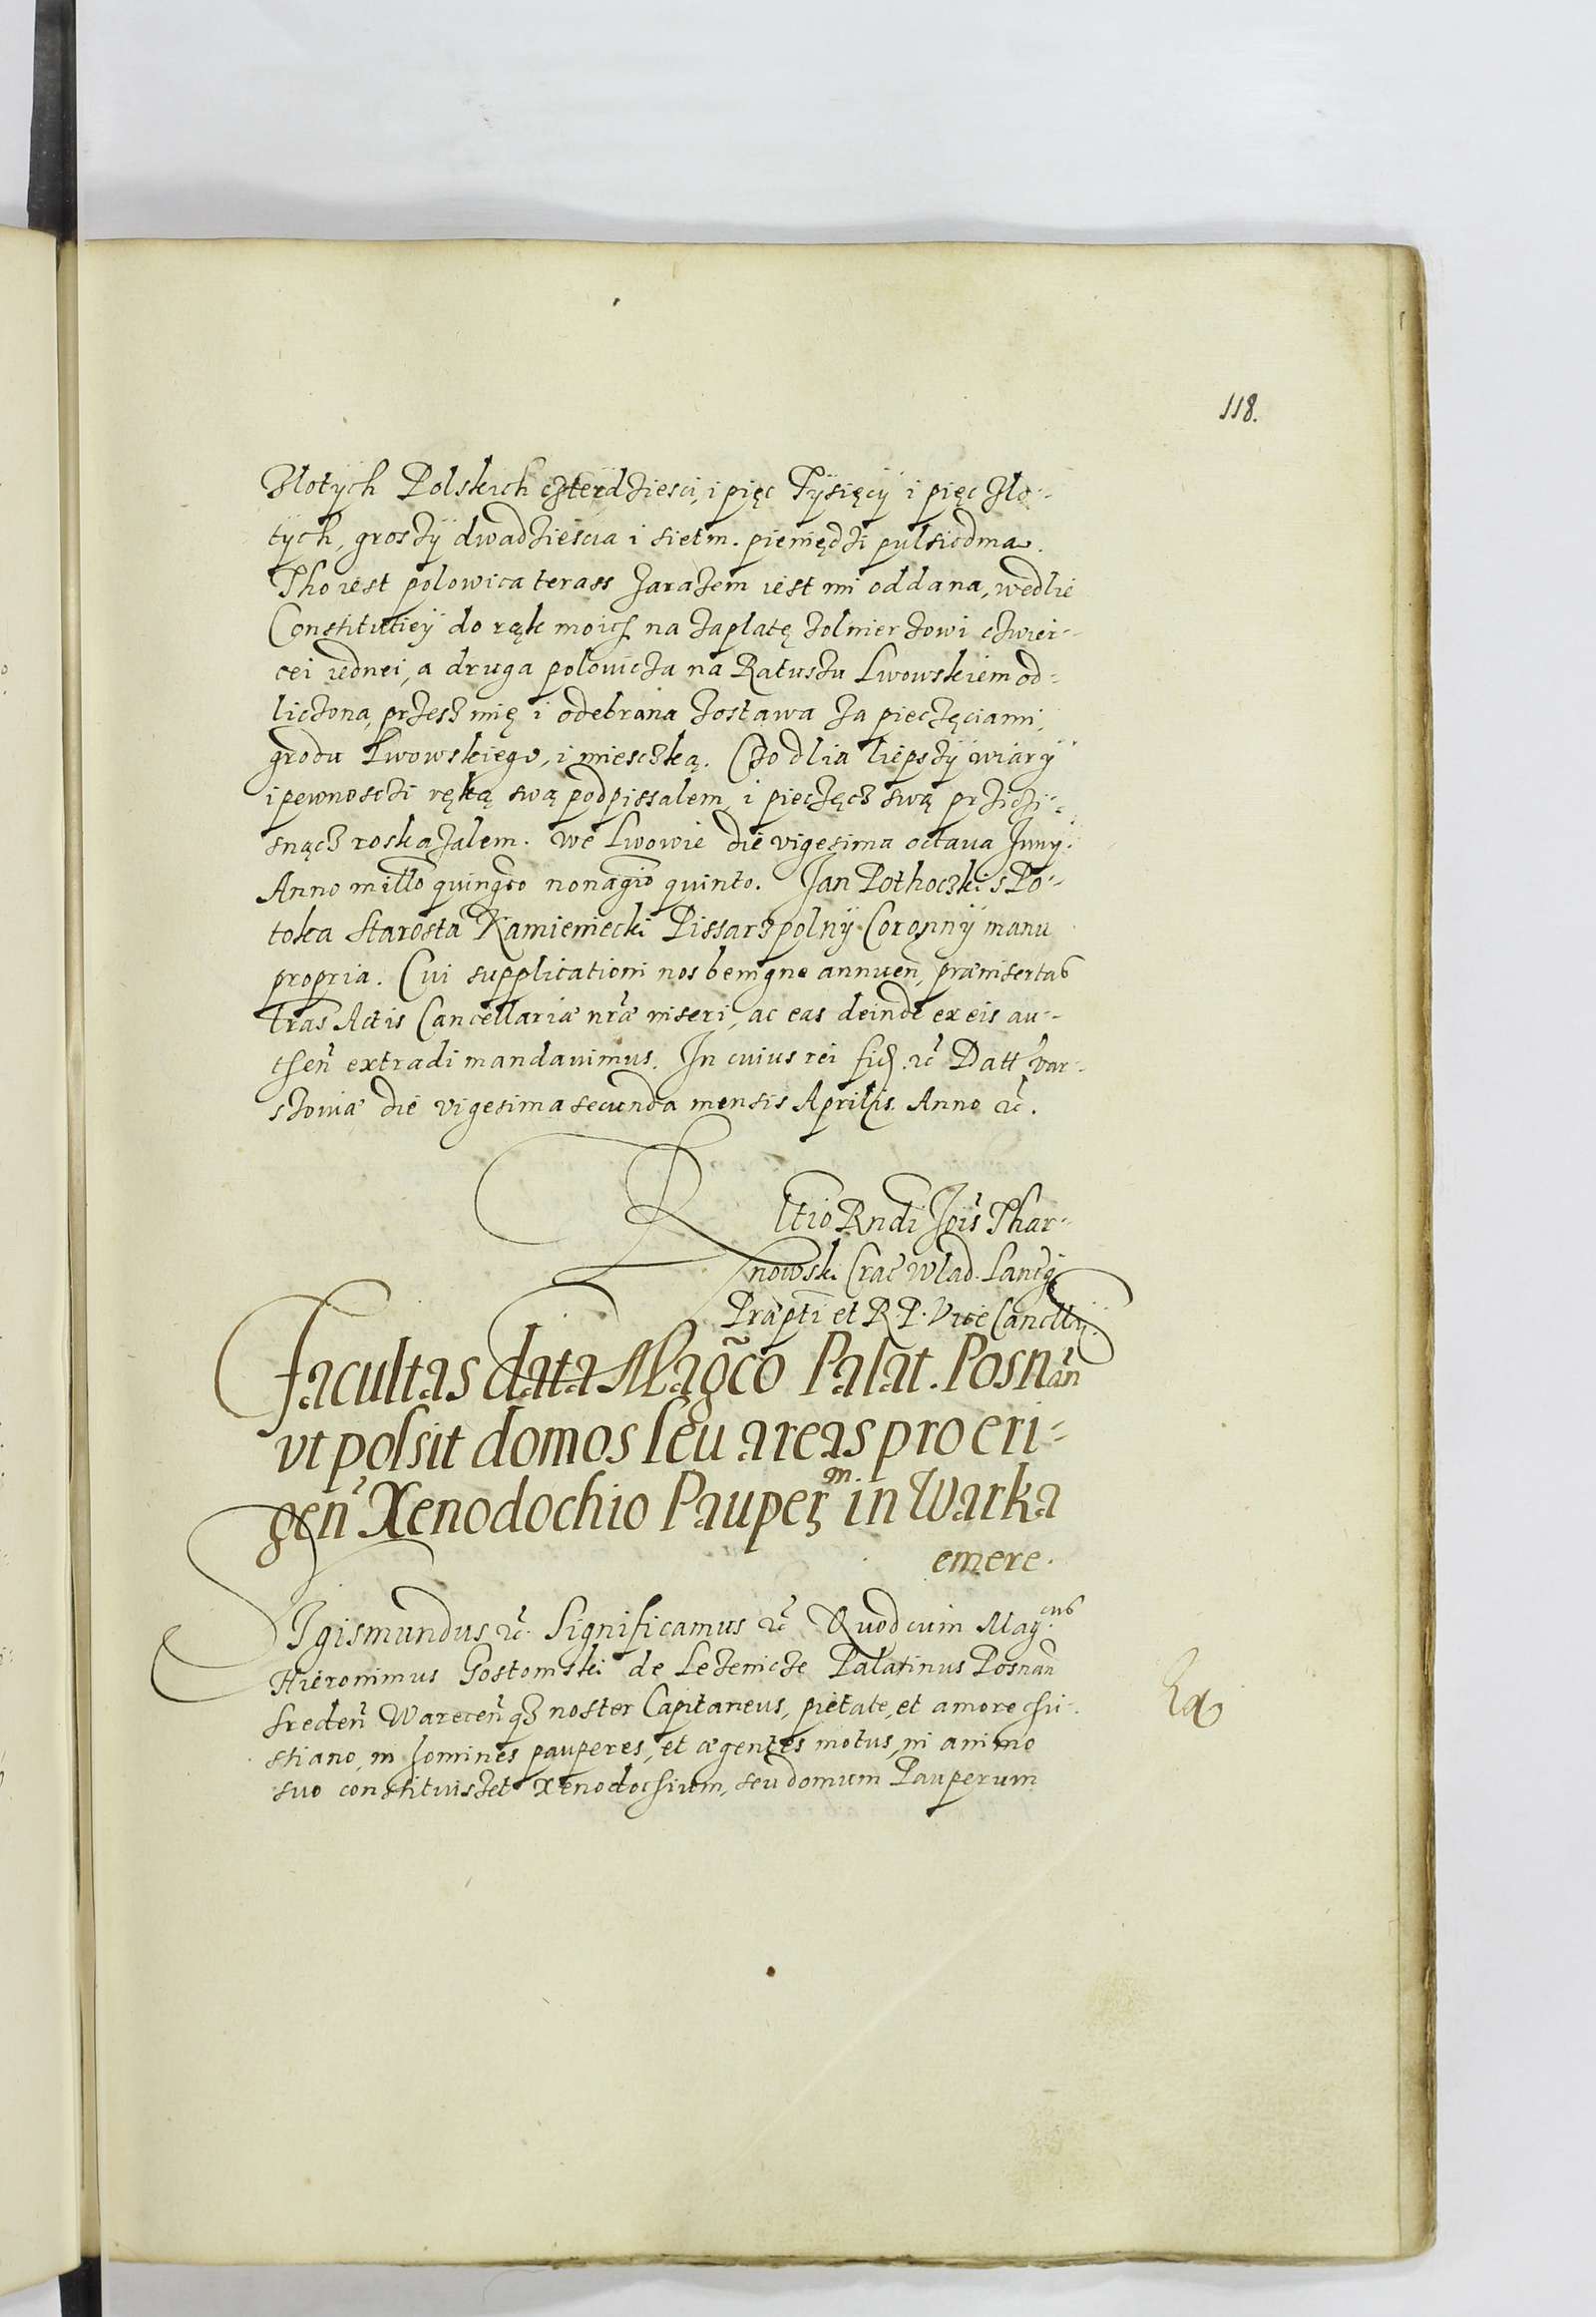 118.
Złotych Polskich czterdziesci, i pięc Tysięcy i pięc zło-
tych, groszy dwadziescia i siełm. pieniędzi pulsiodma.
Tho iest polowica terass zarazem iest mi oddana, wedlie
Constitutiey do rąk moich na zaplatę zolnierzowi czwier-
cei iednei, a druga polowicza na Ratuszu Lwowskiem od-
liczona, przesz mię i odebrana zostawa za pieczęciami,
grodu Lwowskiego, i miesczką. Czo dlia liepszy wiary
i pewnosczi ręką swą podpissalem, i pieczęcz swą prziczi-
snącz roskazalem. We Lwowie die vigesima octaua Juny.
Anno millo quingto nonagio quinto. Jan Pothoczki s Po-
toka Starosta Kamieniecki Pissarz polny Coronny manu
propria. Cui supplicationi nos benigne annuen, præinsertas
lras Actis Cancellariæ nræ inseri, ac eas deinde ex eis au-
then extradi mandauimus. In cuius rei fid. rc Datt Var-
szouiæ die vigesima secunda mensis Aprilis. Anno rc.
Rltio Rndi Jois Thar-
nowski Crac Wlad. Lancg
Præpti et R. P. Vice Cancllrij.
Facultas data Magco Palat. Posnan
vt possit domos seu areas pro eri-
gen Xenodochio Pauperm in Warka
emere.
Sigismundus rc. Significamus rc Quod cum Magcus
Hieronimus Gostomski de Lezenicze Palatinus Posnan
Sreden Warecen qz noster Capitaneus, pietate, et amore chri-
stiano, in homines pauperes, et ægentes motus, in animo
suo constituiszet Xenodochium, seu domum Pauperum